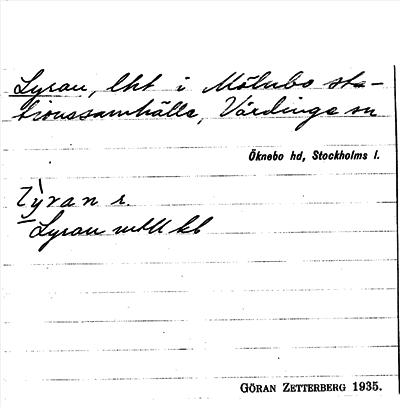 Lyran, lht i Mölnbo sta-
tionssamhälle, Vårdinge sn
Öknebo hd, Stockholms l.
lỳran r.
Lyran mtU kb
GÖRAN ZETTERBERG 1935.